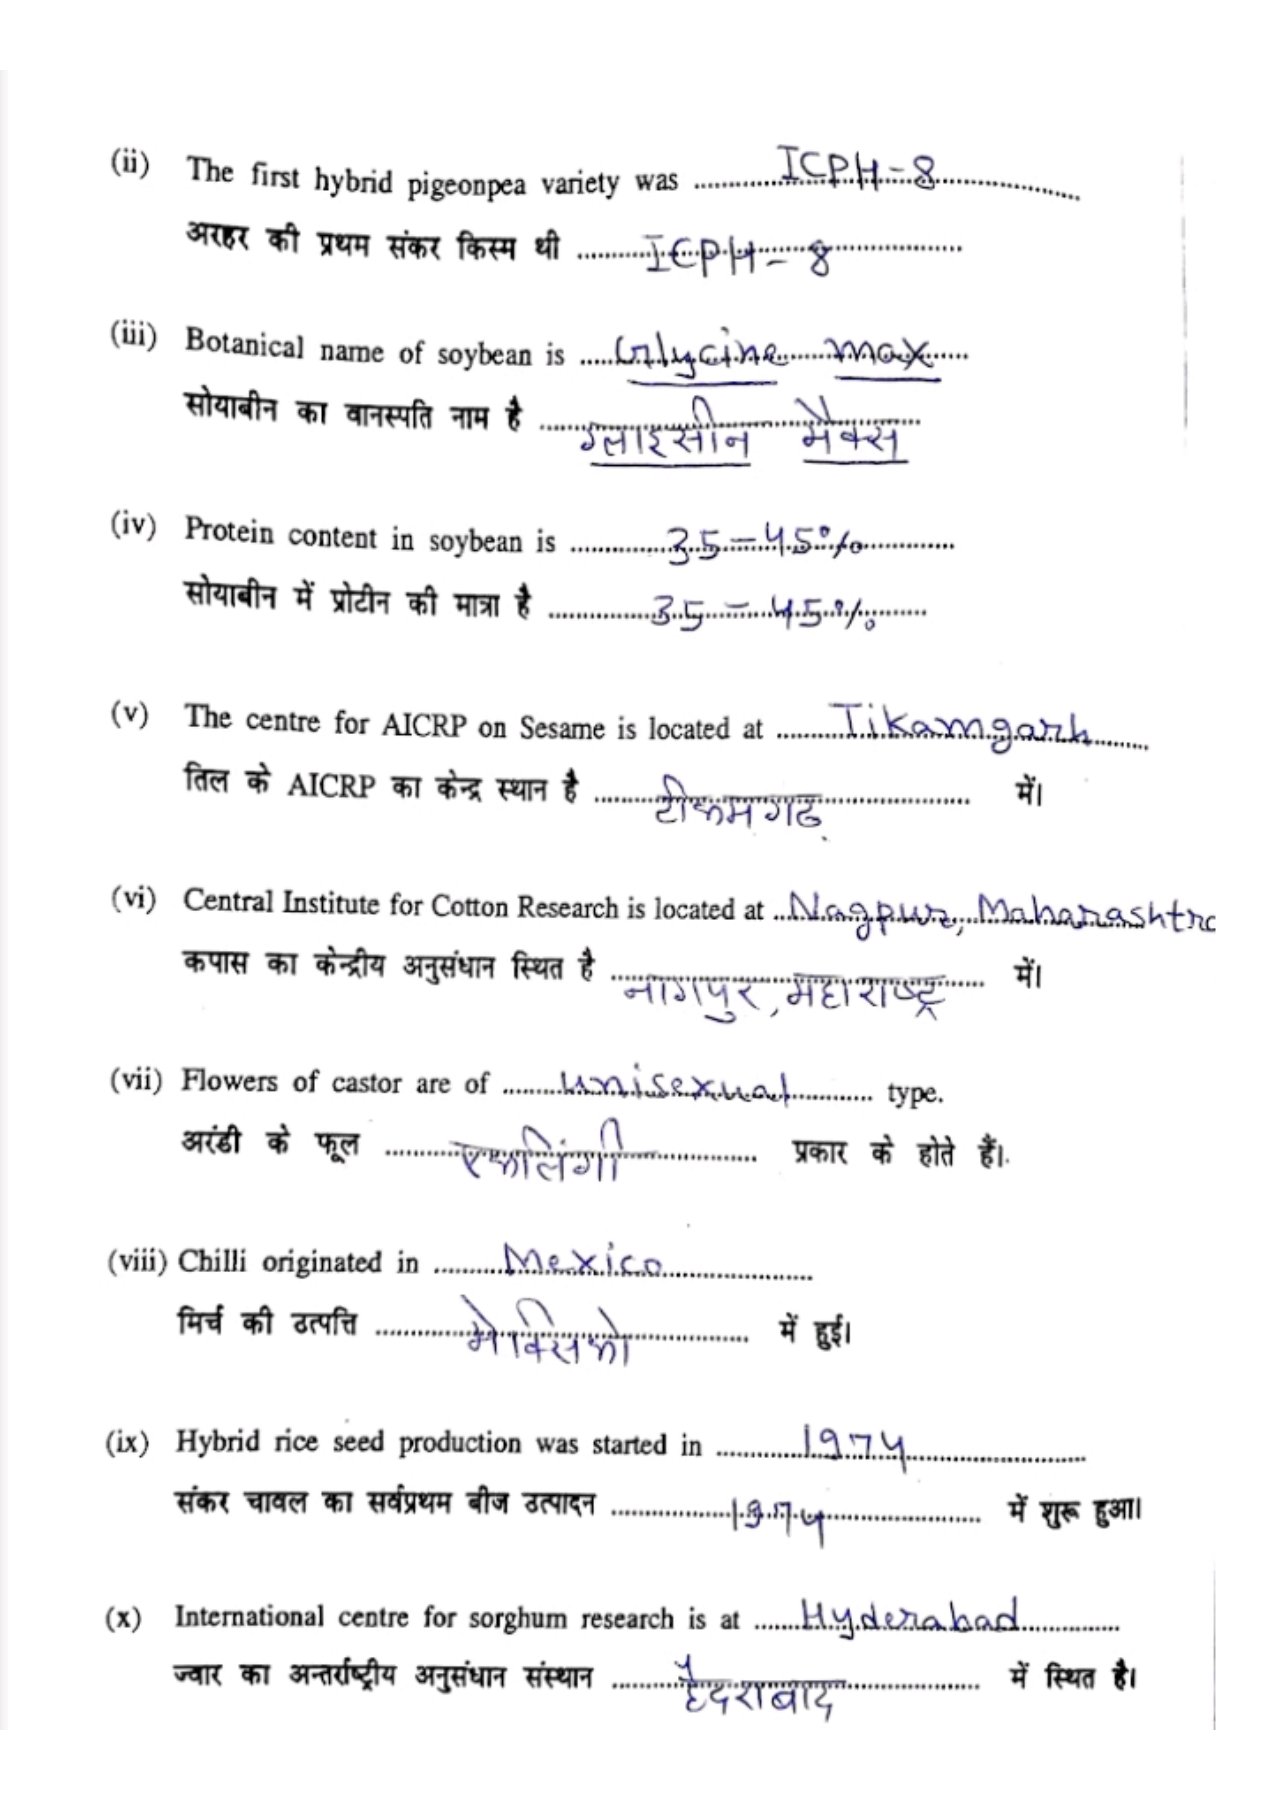 (ii) The first hybrid pigeonpea variety was ICPH-8
अरहर की प्रथम संकर किस्म थी ICPH-8
(iii) Botanical name of soybean is Glycine max
सोयाबीन का वानस्पति नाम है ग्लाइसीन मैक्स
(iv) Protein content in soybean is 35-45%
सोयाबीन में प्रोटीन की मात्रा है 35-45%
(v) The centre for AICRP on Sesame is located at Tikamgarh
तिल के AICRP का केन्द्र स्थान है टीकमगढ में।
(vi) Central Institute for Cotton Research is located at Nagpur, Maharashtra
कपास का केन्द्रीय अनुसंधान स्थित है नागपुर, महाराष्ट्र में।
(vii) Flowers of castor are of unisexual type.
अरंडी के फूल एकलिंगी प्रकार के होते हैं।
(viii) Chilli originated in Mexico
मिर्च की उत्पत्ति मेक्सिको में हुई।
(ix) Hybrid rice seed production was started in 1974
संकर चावल का सर्वप्रथम बीज उत्पादन 1974 में शुरू हुआ।
(x) International centre for sorghum research is at Hyderabad
ज्वार का अन्तर्राष्ट्रीय अनुसंधान संस्थान हैदराबाद में स्थित है।